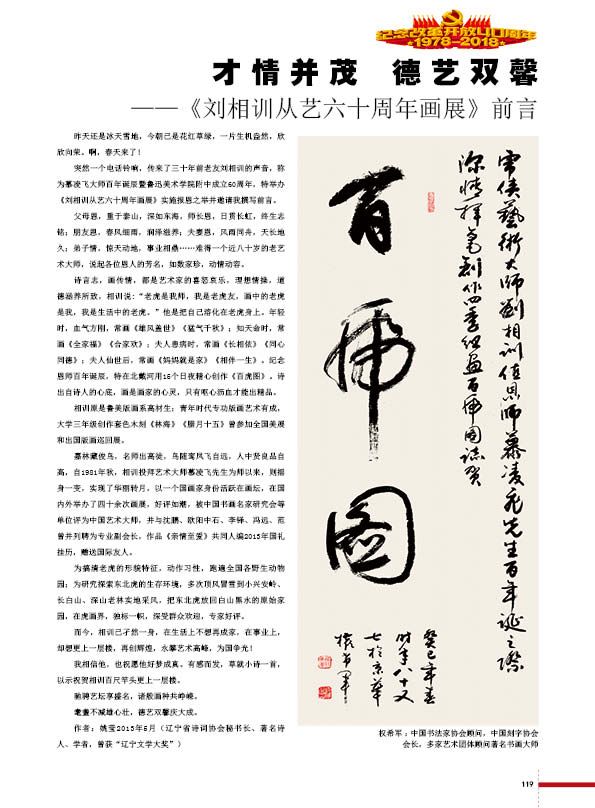 纪念改革开放40周年
★1978-2018★
才情并茂 德艺双馨
——《刘相训从艺六十周年画展》前言
昨天还是冰天雪地,今朝已是花红草绿,一片生机盎然,欣
欣向荣。啊,春天来了!
突然一个电话铃响,传来了三十年前老友刘相训的声音,称
为慕凌飞大师百年诞辰暨鲁迅美术学院附中成立60周年,特举办
《刘相训从艺六十周年画展》实施报恩之举并邀请我撰写前言。
父母恩,重于泰山,深如东海,师长恩,日贯长虹,终生志
铭;朋友恩,春风细雨,润泽滋养;夫妻恩,风雨同舟,天长地
久;弟子情,惊天动地,事业相鼎……难得一个近八十岁的老艺
术大师,说起各位恩人的芳名,如数家珍,动情动容。
诗言志,画传情,都是艺术家的喜怒哀乐,理想情操,道
德涵养所致,相训说:“老虎是我师,我是老虎友,画中的老虎
是我,我是生活中的老虎。”他是把自己溶化在老虎身上。年轻
时,血气方刚,常画《雄风盖世》《猛气千秋》;知天命时,常
画《全家福》《合家欢》;夫人患病时,常画《长相依》《同心
同德》;夫人仙世后,常画《妈妈就是家》《相伴一生》。纪念
恩师百年诞辰,特在北戴河用15个日夜精心创作《百虎图》。诗
出自诗人的心底,画是画家的心灵,只有呕心沥血才能出精品。
相训原是鲁美版画系高材生;青年时代专功版画艺术有成,
大学三年级创作套色木刻《林海》《腊月十五》曾参加全国美展
和出国版画巡回展。
嘉林藏俊鸟,名师出高徒,鸟随鸾凤飞自远,人中贤良品自
高,自1981年秋,相训投拜艺术大师慕凌飞先生为师以来,则摇
身一变,实现了华丽转月,以一个国画家身份活跃在画坛,在国
内外举办了四十余次画展,好评如潮,被中国书画名家研究会等
单位评为中国艺术大师,并与沈鹏、欧阳中石、李铎、冯远、范
曾并列聘为专业副会长,作品《亲情至爱》共同人编2015年国礼
挂历,赠送国际友人。
为搞清老虎的形貌特征,动作习性,跑遍全国各野生动物
园;为研究探索东北虎的生存环境,多次顶风冒雪到小兴安岭、
长白山、深山老林实地采风,把东北虎放回白山黑水的原始家
园,在虎画界,独标一帜,深受群众欢迎,专家好评。
而今,相训已孑然一身,在生活上不想再成家,在事业上,
却想更上一层楼,再创辉煌,永攀艺术高峰,为国争光!
我相信他,也祝愿他好梦成真。有感而发,草就小诗一首,
以示祝贺相训百尺竿头更上一层楼。
驰骋艺坛享盛名,诸般画种共峥嵘。
耄耋不减雄心壮,德艺双馨庆大成。
作者:姚莹2013年5月(辽宁省诗词协会秘书长、著名诗
人、学者,曾获“辽宁文学大奖”)
百虎图
艺術大师劉相訓值恩师慕凌飛先生百年诞之際
深情挥毫創作四季组画百虎图誌贺
癸巳年春
时年八十又
七於京華
權希軍
权希军:中国书法家协会顾问,中国刻字协会
会长,多家艺术团体顾问著名书画大师
119